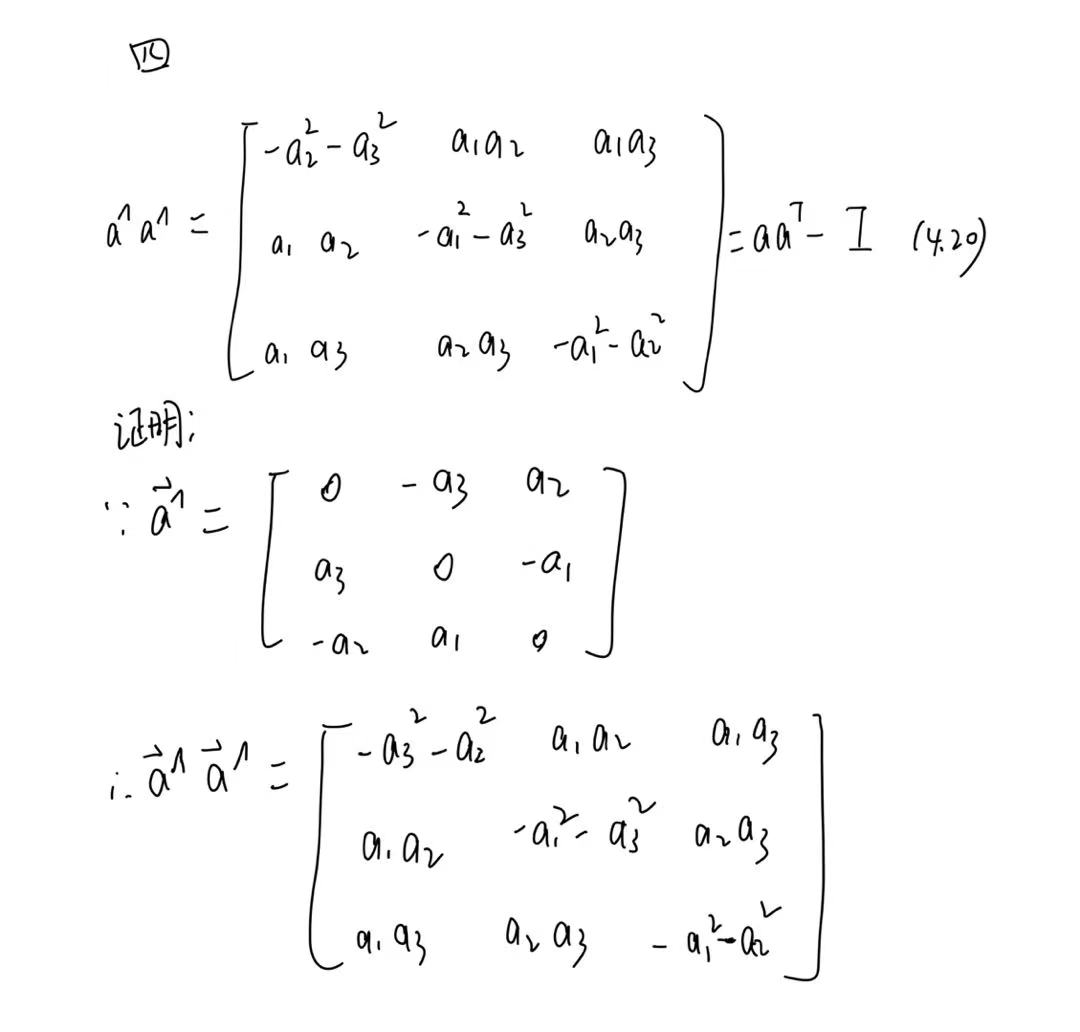 四
a^a^ = [ -a₂²-a₃² a₁a₂ a₁a₃
a₁a₂ -a₁²-a₃² a₂a₃
a₁a₃ a₂a₃ -a₁²-a₂² ] = aaᵀ - I (4.20)
证明:
∵ a⃗^ = [ 0 -a₃ a₂
a₃ 0 -a₁
-a₂ a₁ 0 ]
∴ a⃗^a⃗^ = [ -a₃²-a₂² a₁a₂ a₁a₃
a₁a₂ -a₁²-a₃² a₂a₃
a₁a₃ a₂a₃ -a₁²-a₂² ]